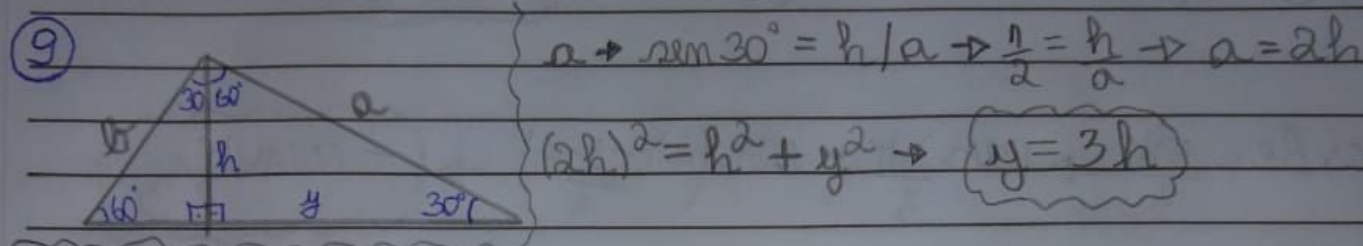 9
30° 60°
b a
h
60° y 30°
a → sen 30° = h/a → 1/2 = h/a → a = 2h
(2h)² = h² + y² → y = 3h